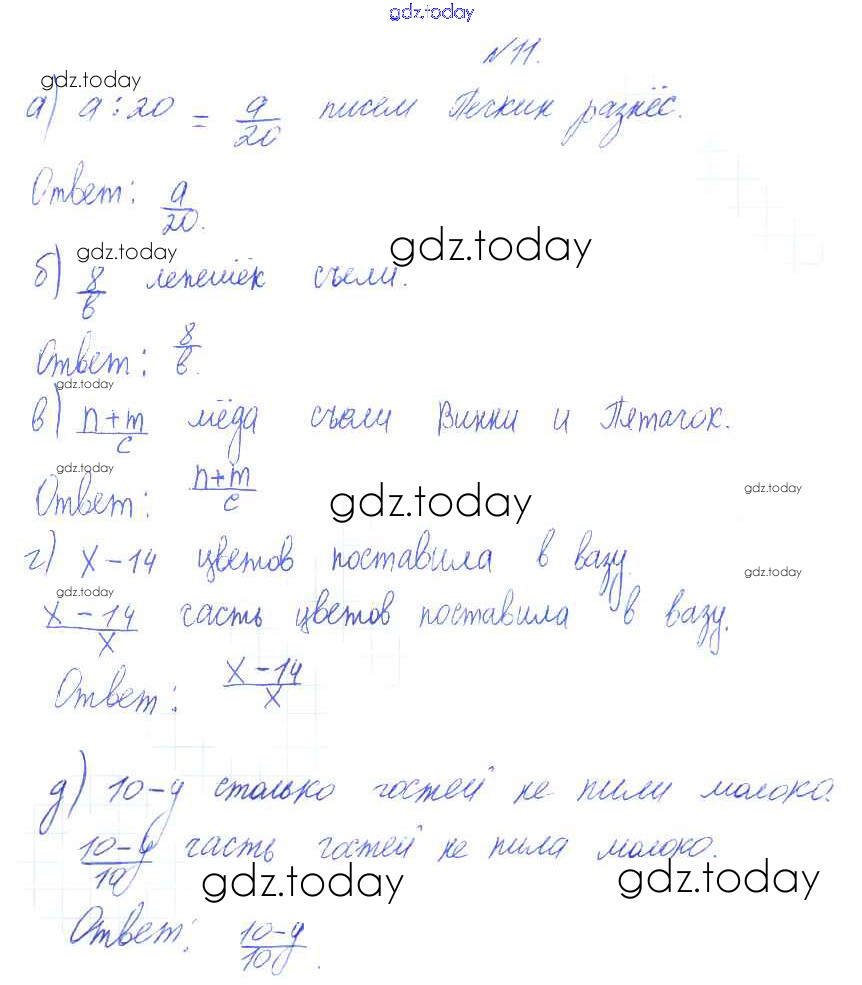 gdz.today
№11.
gdz.today
а) a : 20 = a/20 писем Печкин разнёс.
Ответ: a/20.
gdz.today
gdz.today
б) 8/в лепешек съели.
Ответ: 8/в.
gdz.today
в) n+m/c мёда съели Винни и Пятачок.
gdz.today
Ответ: n+m/c
gdz.today
gdz.today
г) x-14 цветов поставила в вазу.
gdz.today
gdz.today
x-14/x часть цветов поставила в вазу.
Ответ: x-14/x
д) 10-y столько гостей не пили молоко.
10-y/10 часть гостей не пила молоко.
gdz.today
gdz.today
Ответ: 10-y/10.